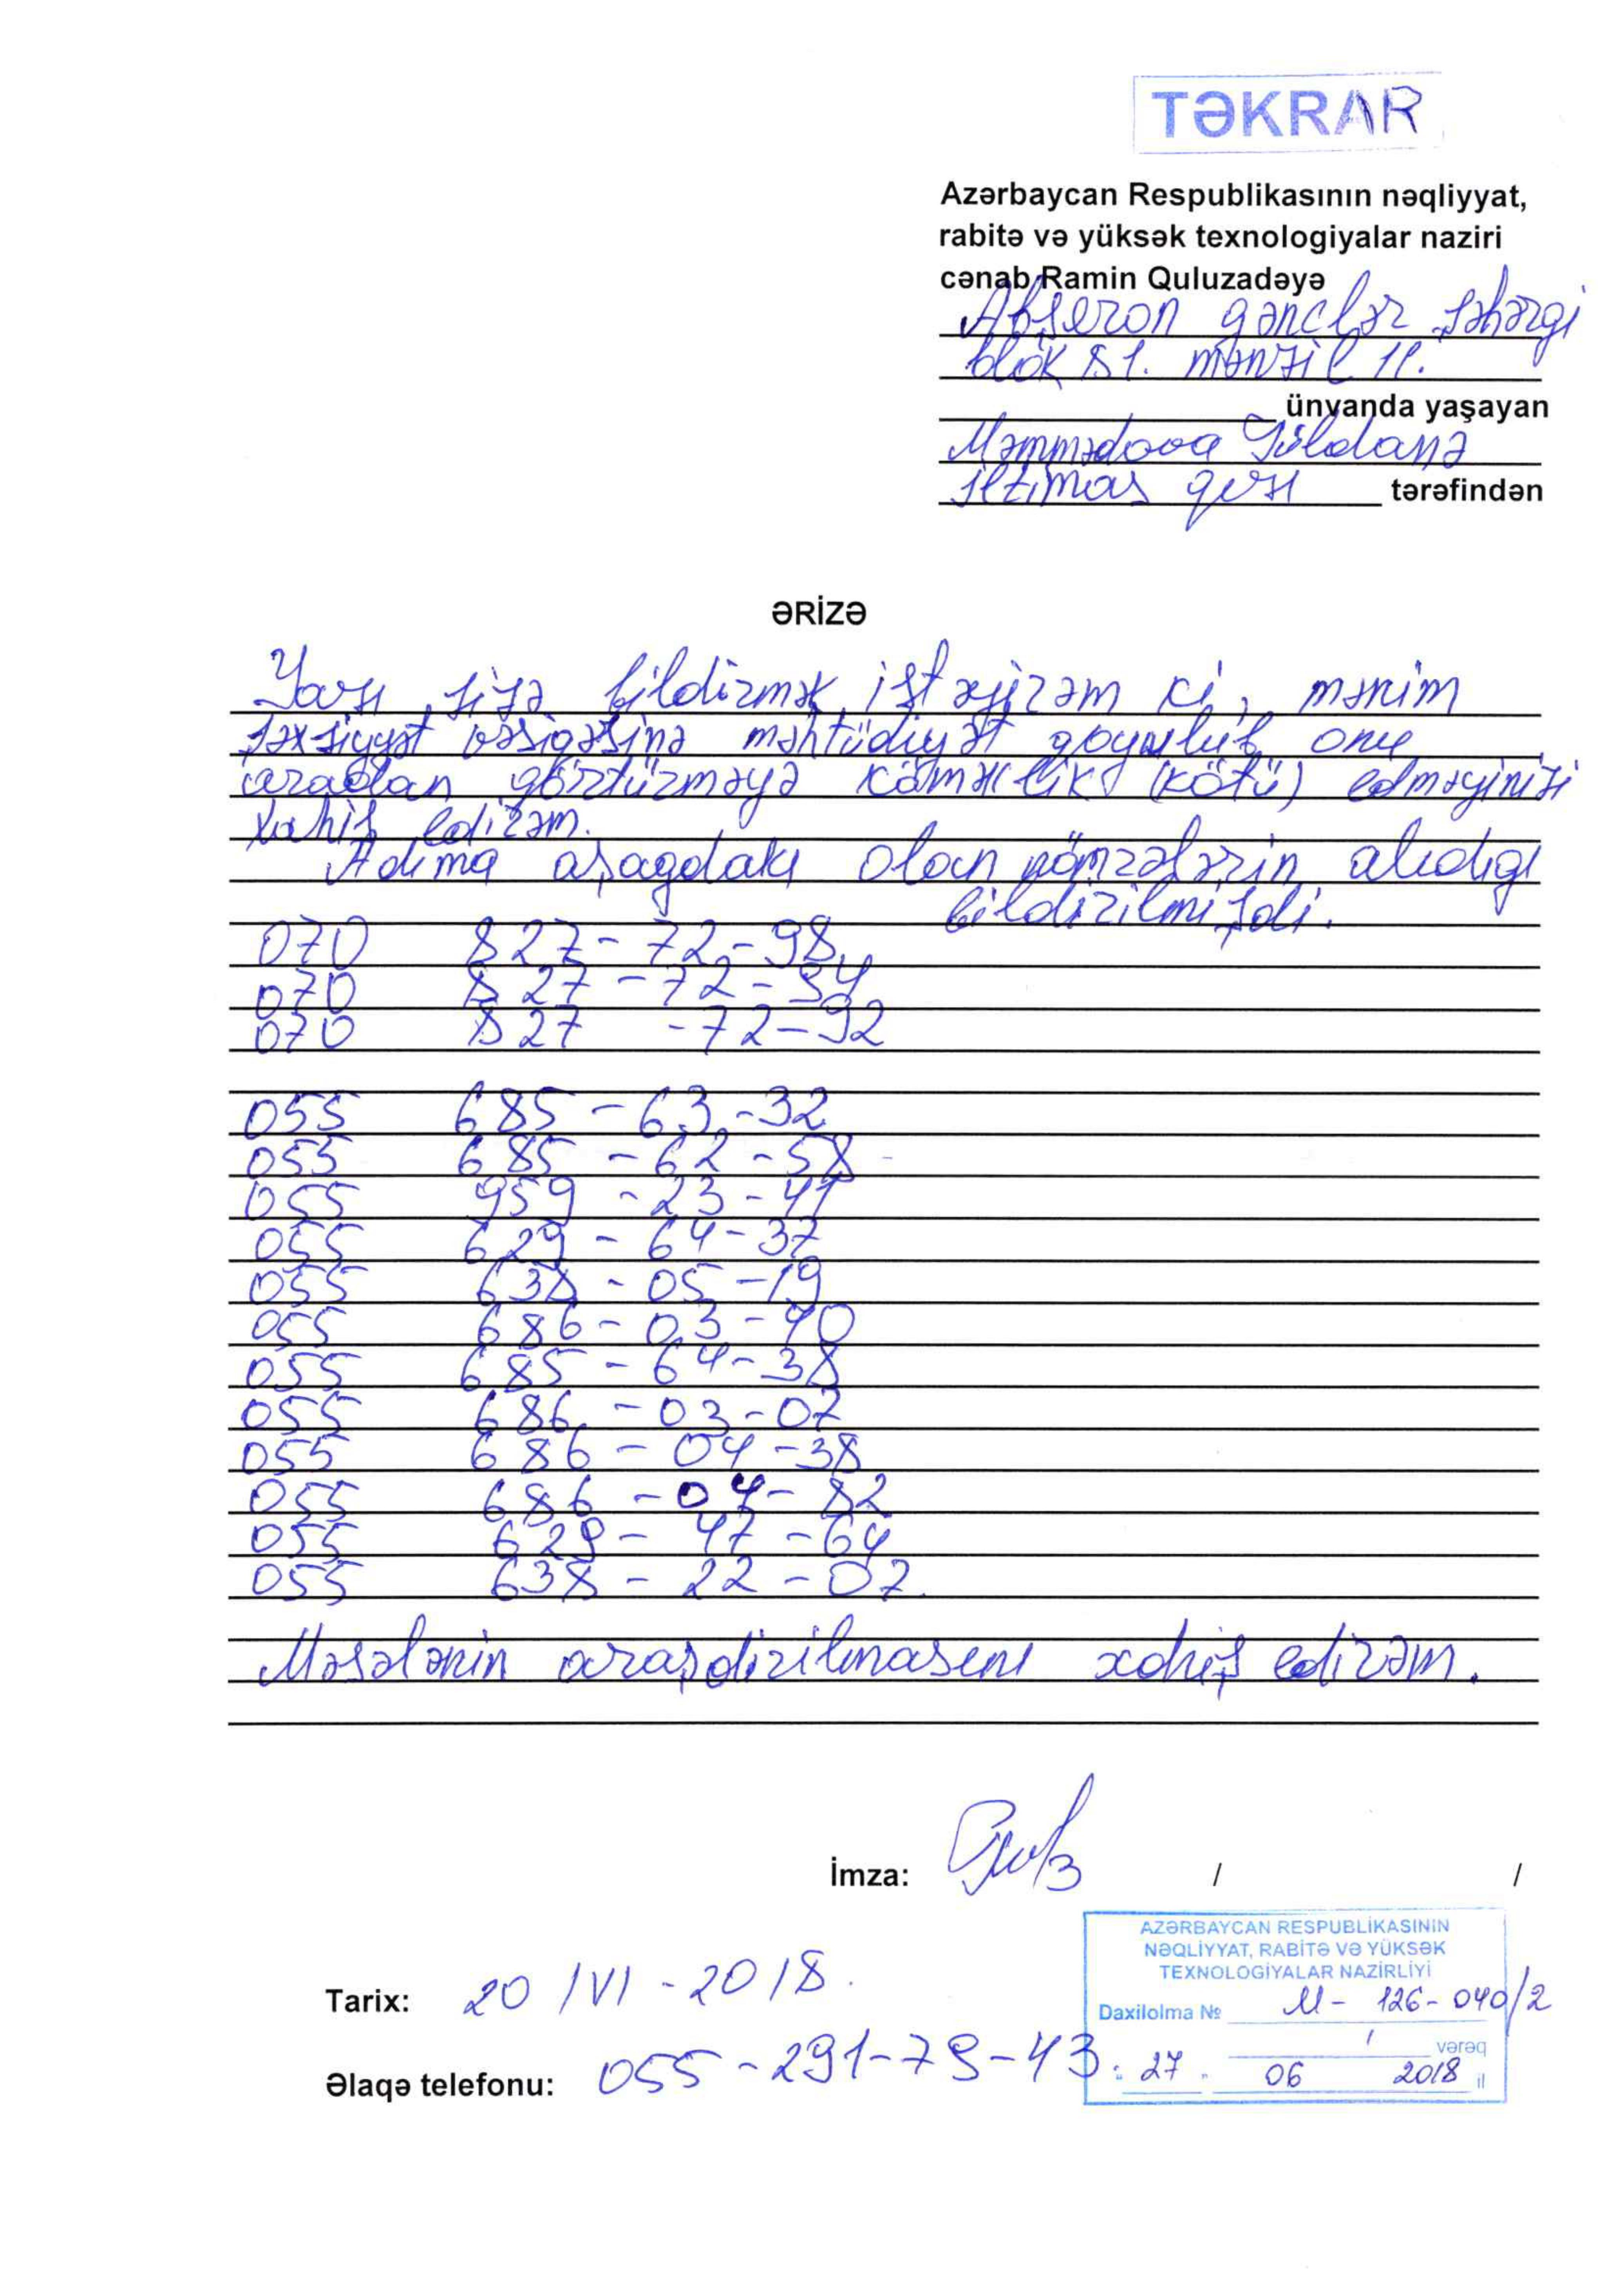 TƏKRAR
Azərbaycan Respublikasının nəqliyyat,
rabitə və yüksək texnologiyalar naziri
cənab Ramin Quluzadəyə
Abşeron gənclər şəhərgi
blok 81. mənzil 11.
ünvanda yaşayan
Məmmədova Güldanə
İltimas qızı tərəfindən
ƏRİZƏ
Yazı sizə bildirmək istəyirəm ki, mənim
şəxsiyyət vəsiqəsinə məhtüdiyət qoyulub onu
aradan götürməyə köməklik (kötü) edməyinizi
xahiş edirəm.
Adıma aşagdakı olan nömrələrin alıdıgı
bildirilmişdi.
070 827-72-98
070 827-72-94
070 827-72-92
055 685-63-32
055 685-62-58
055 959-23-41
055 629-64-37
055 638-05-19
055 686-03-40
055 685-64-38
055 686-03-07
055 686-04-38
055 686-04-82
055 629-47-64
055 638-22-07
Məsələnin araşdirilmasını xahiş edirəm.
İmza: / /
AZƏRBAYCAN RESPUBLİKASININ
NƏQLİYYAT, RABİTƏ VƏ YÜKSƏK
TEXNOLOGİYALAR NAZİRLİYİ
Tarix: 20/VI-2018.
Daxilolma № M-126-040/2
1 vərəq
Əlaqə telefonu: 055-291-79-43
"27" 06 2018 il